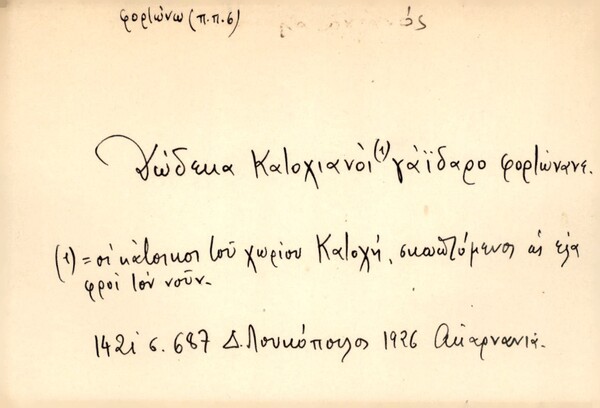 φορτώνω (π.π.6)
Δώδεκα Κατοχιανοὶ (1) γάϊδαρο φορτώνανε.
(1) = οἱ κάτοικοι τοῦ χωρίου Κατοχή, σκωπτόμενοι ὡς ελα
φροὶ τὸν νοῦν.
142i σ. 687 Δ. Λουκόπουλος 1926 Ακαρνανία.